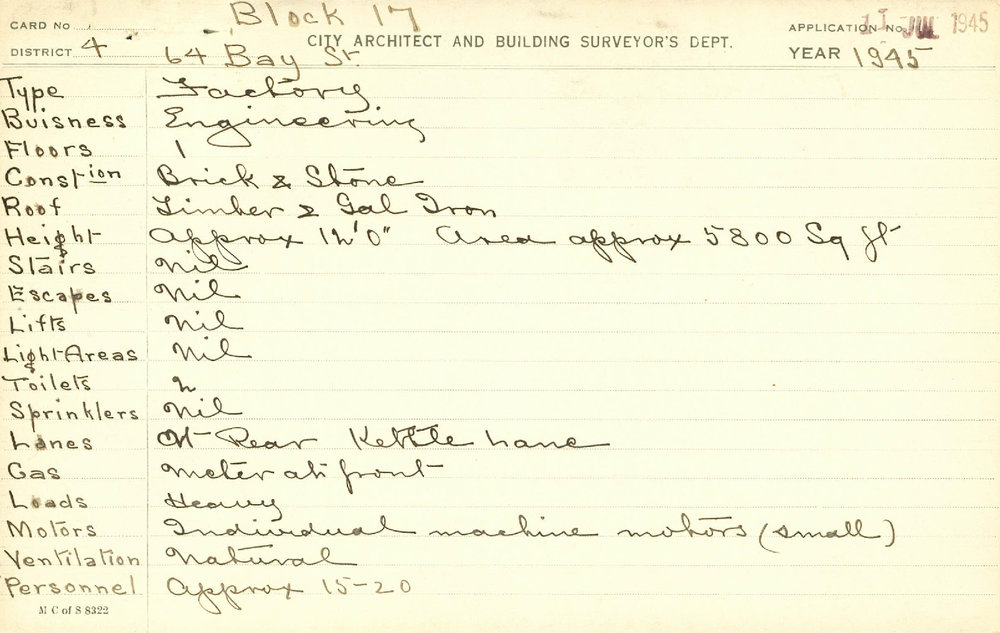 CARD No Block 17 APPLICATION No. 11 JUL 1945
DISTRICT 4 64 Bay St. CITY ARCHITECT AND BUILDING SURVEYOR'S DEPT. YEAR 1945
Type Factory
Buisness Engineering
Floors 1
Constion Brick & Stone
Roof Timber & Gal Iron
Height Approx 12'0" Area approx 5800 Sq ft
Stairs Nil
Escapes Nil
Lifts Nil
Light Areas Nil
Toilets 2
Sprinklers Nil
Lanes At Rear Kettle Lane
Gas Meter at front
Loads Heavy
Motors Individual machine motors (small)
Ventilation Natural
Personnel Approx 15-20
M C of S 8322